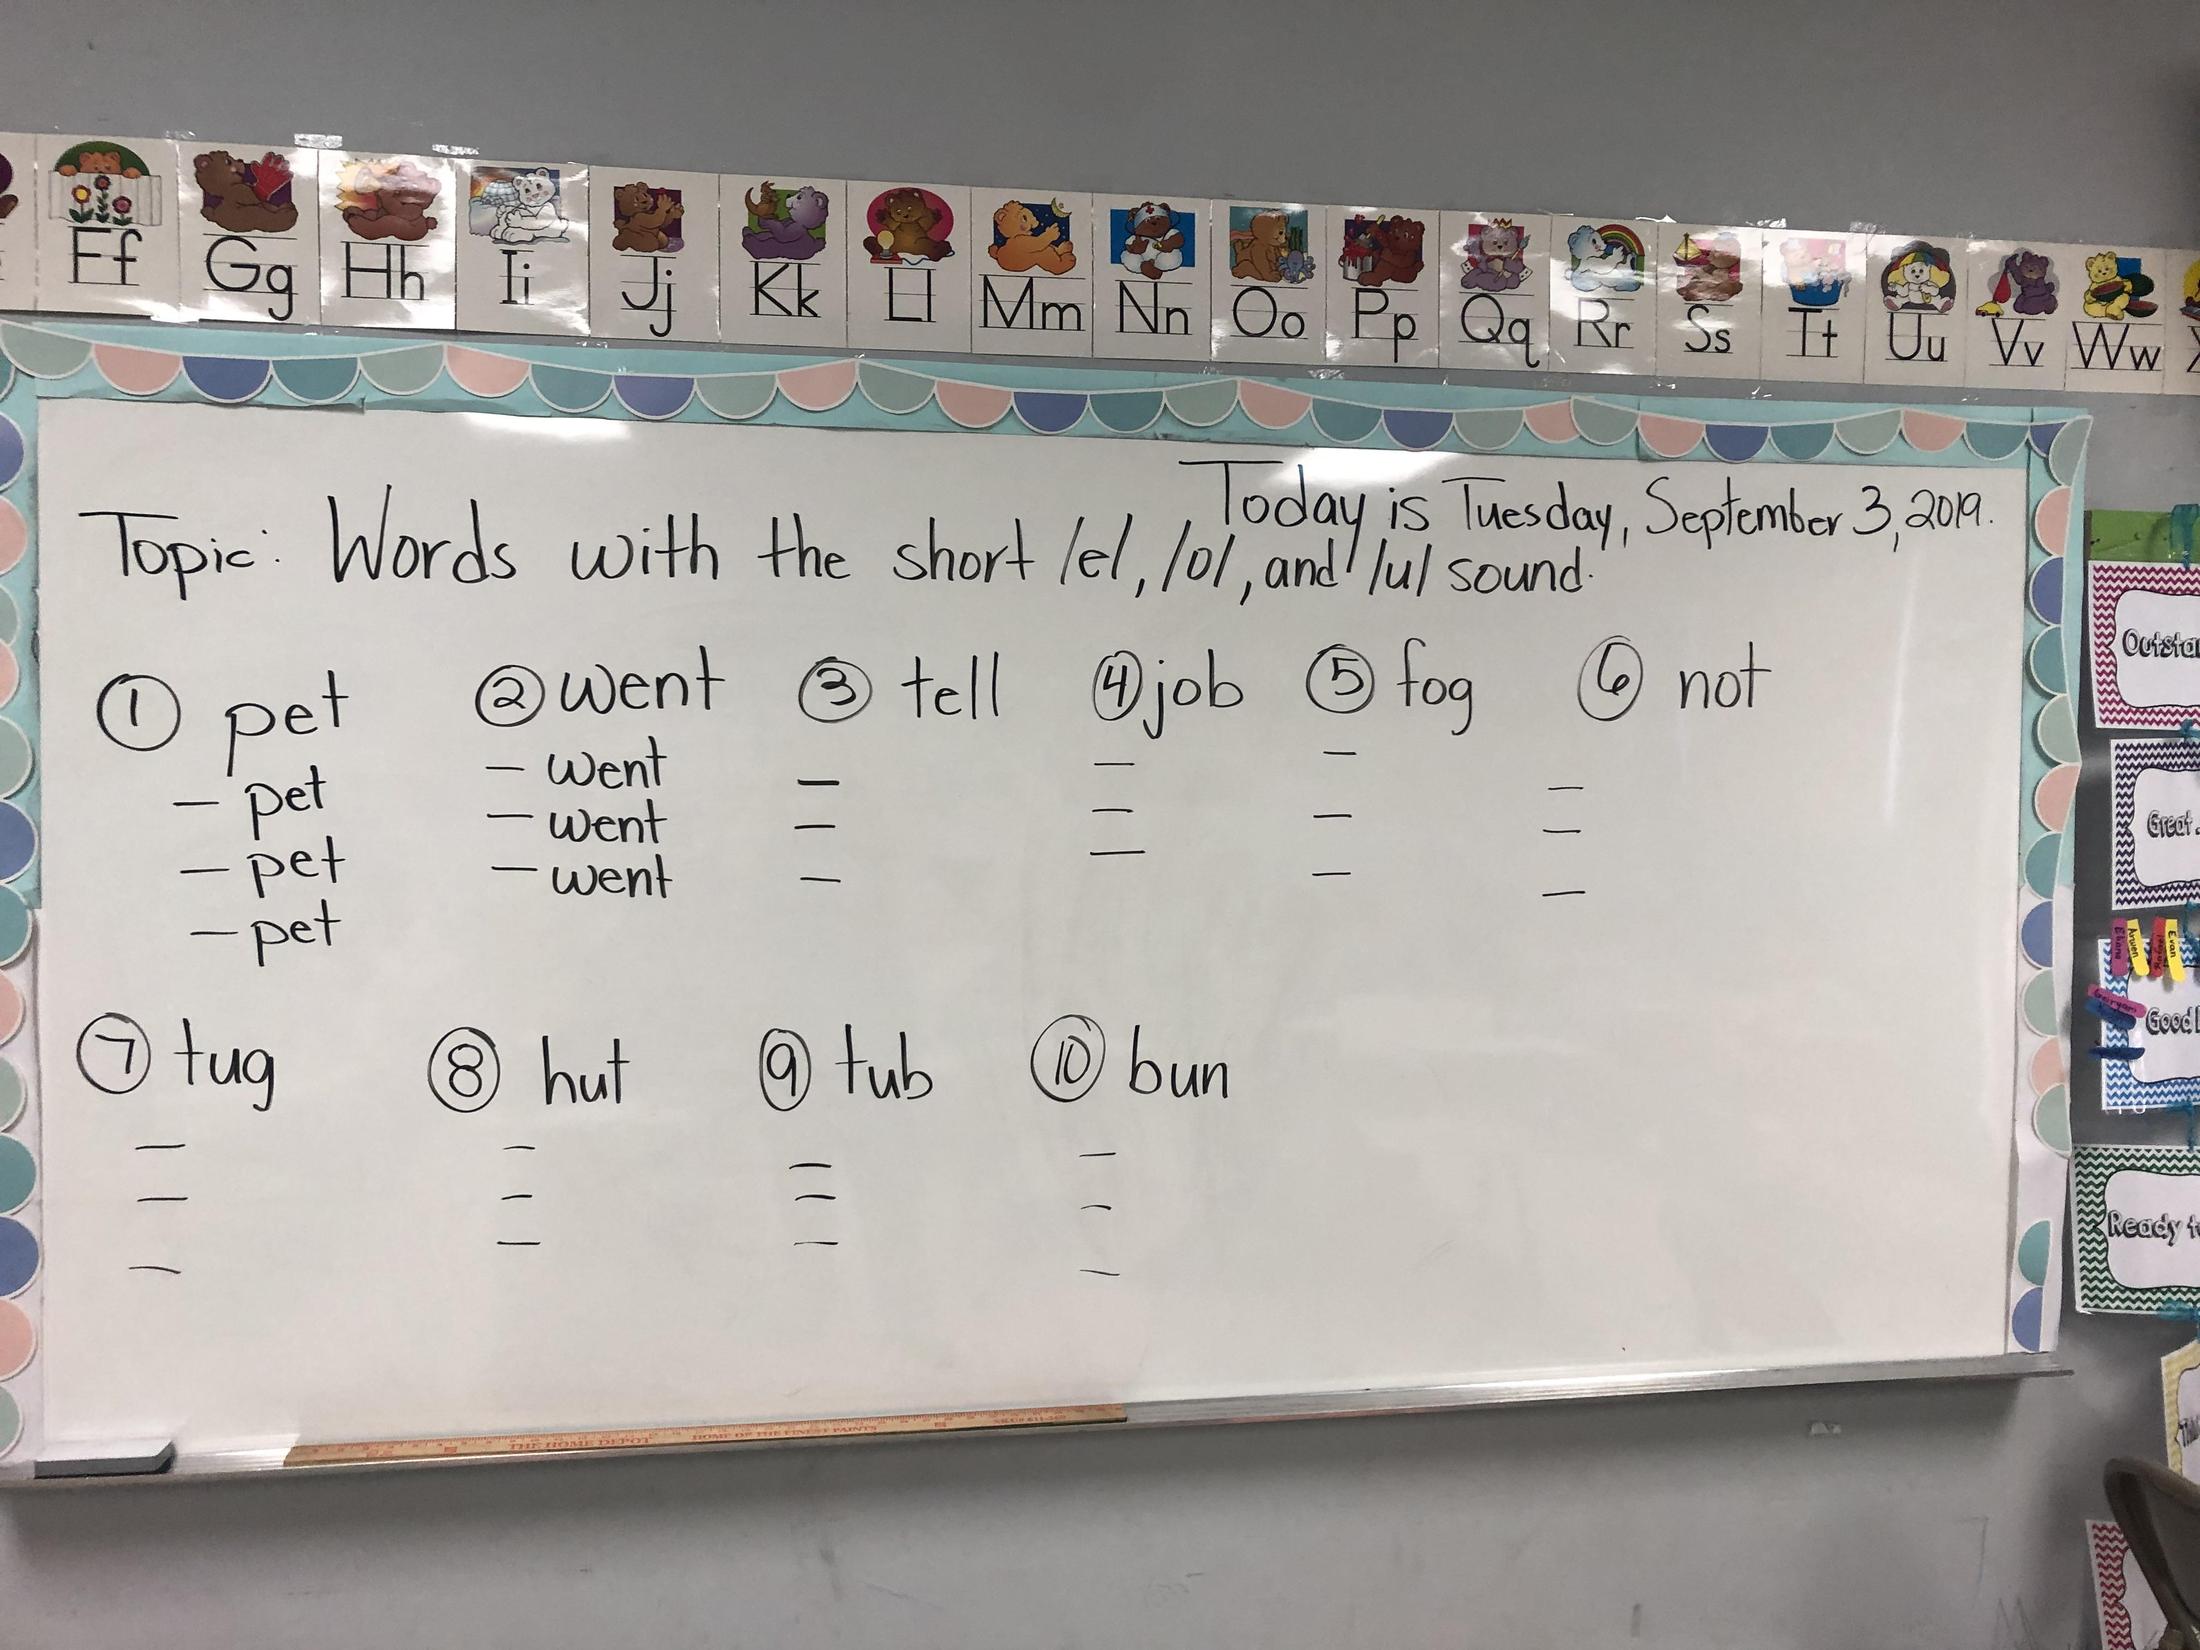 Ff Gg Hh Ii Jj Kk Ll Mm Nn Oo Pp Qq Rr Ss Tt Uu Vv Ww
Today is Tuesday, September 3, 2019.
Topic: Words with the short /e/, /o/, and /u/ sound.
① pet ② went ③ tell ④ job ⑤ fog ⑥ not
– pet – went – – – –
– pet – went – – – –
– pet – went – – – –
⑦ tug ⑧ hut ⑨ tub ⑩ bun
– – – –
– – – –
– – – –
Great
Good
Ready
Arwen
Evan
THE HOME DEPOT HOME OF THE FINEST PAINTS